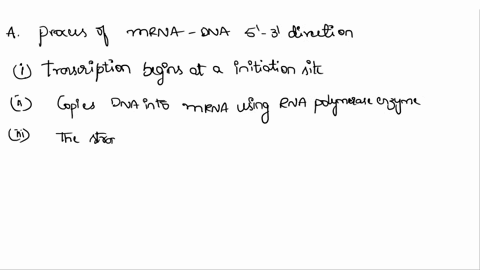 A. process of mRNA - DNA 5'-3' direction
(i) Transcription begins at a initiation site
(ii) Copies DNA into mRNA using RNA polymerase enzyme
(iii) The stra